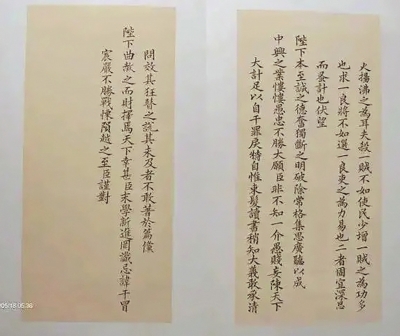 火揚沸之為耳夫殺一賊不如使民少增一賊之為功多
也求一良將不如選一良吏之為力易也二者固宜深思
而蚤計也伏望
陛下本至誠之德奮獨斷之明破除常格集思廣聽以成
中興之業慺慺愚忠不勝大願臣非不知一介愚賤妄陳天下
大計足以自干罪戾特自惟束髮讀書稍知大義敢承清
問效其狂瞽之說其未及者不敢著於篇儻
陛下曲赦之而財擇焉天下幸甚臣末學新進罔識忌諱干冒
宸嚴不勝戰慄隕越之至臣謹對